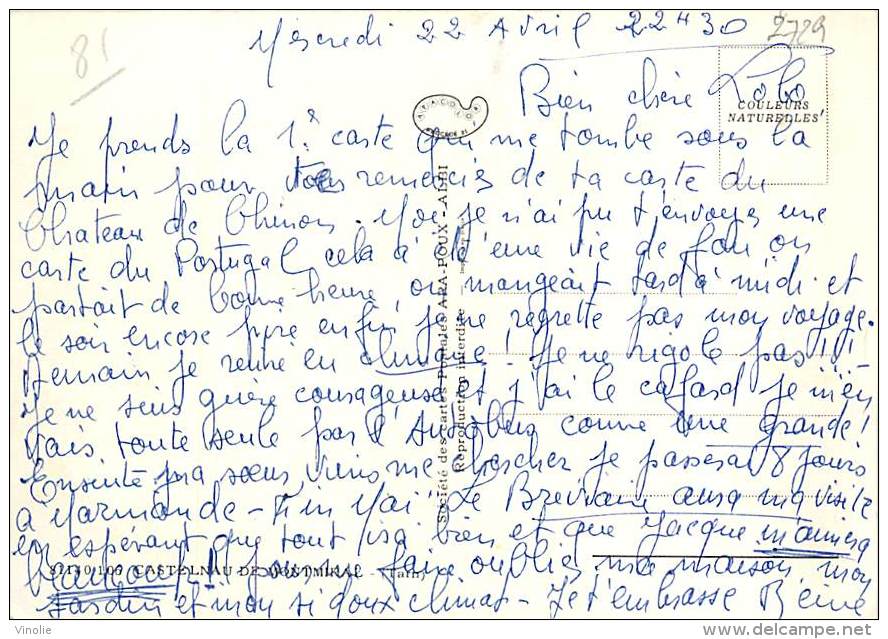 Mercredi 22 Avril 22H30
2729
81
Bien chère Lolo
COULEURS
NATURELLES
Je prends la 1° carte qui me tombe sous la
main pour te remercier de ta carte du
Château de Chinon. Moi je n'ai pu t'envoyer une
carte du Portugal, cela a été une vie de fou on
partait de bonne heure, on mangeait tard à midi et
le soir encore pire enfin je ne regrette pas mon voyage.
Demain je rentre en clinique ! Je ne rigole pas !!!
Je ne suis guère courageuse et j'ai le cafard je m'en
vais toute seule par l'Autobus comme une grande !
Ensuite ma sœur viens me chercher je passerai 8 jours
à Marmande - Fin Mai Le aura ma visite
en espérant que tout ira bien et que Jacque m'aimera
beaucoup !! pour me faire oublier ma maison mon
jardin et mon si doux climat - Je t'embrasse
Société des cartes Postales ARA-POUX - ALBI
Reproduction interdite
81140 100 CASTELNAU DE MONTMIRAL - (Tarn)
© Vinolie
www.delcampe.net